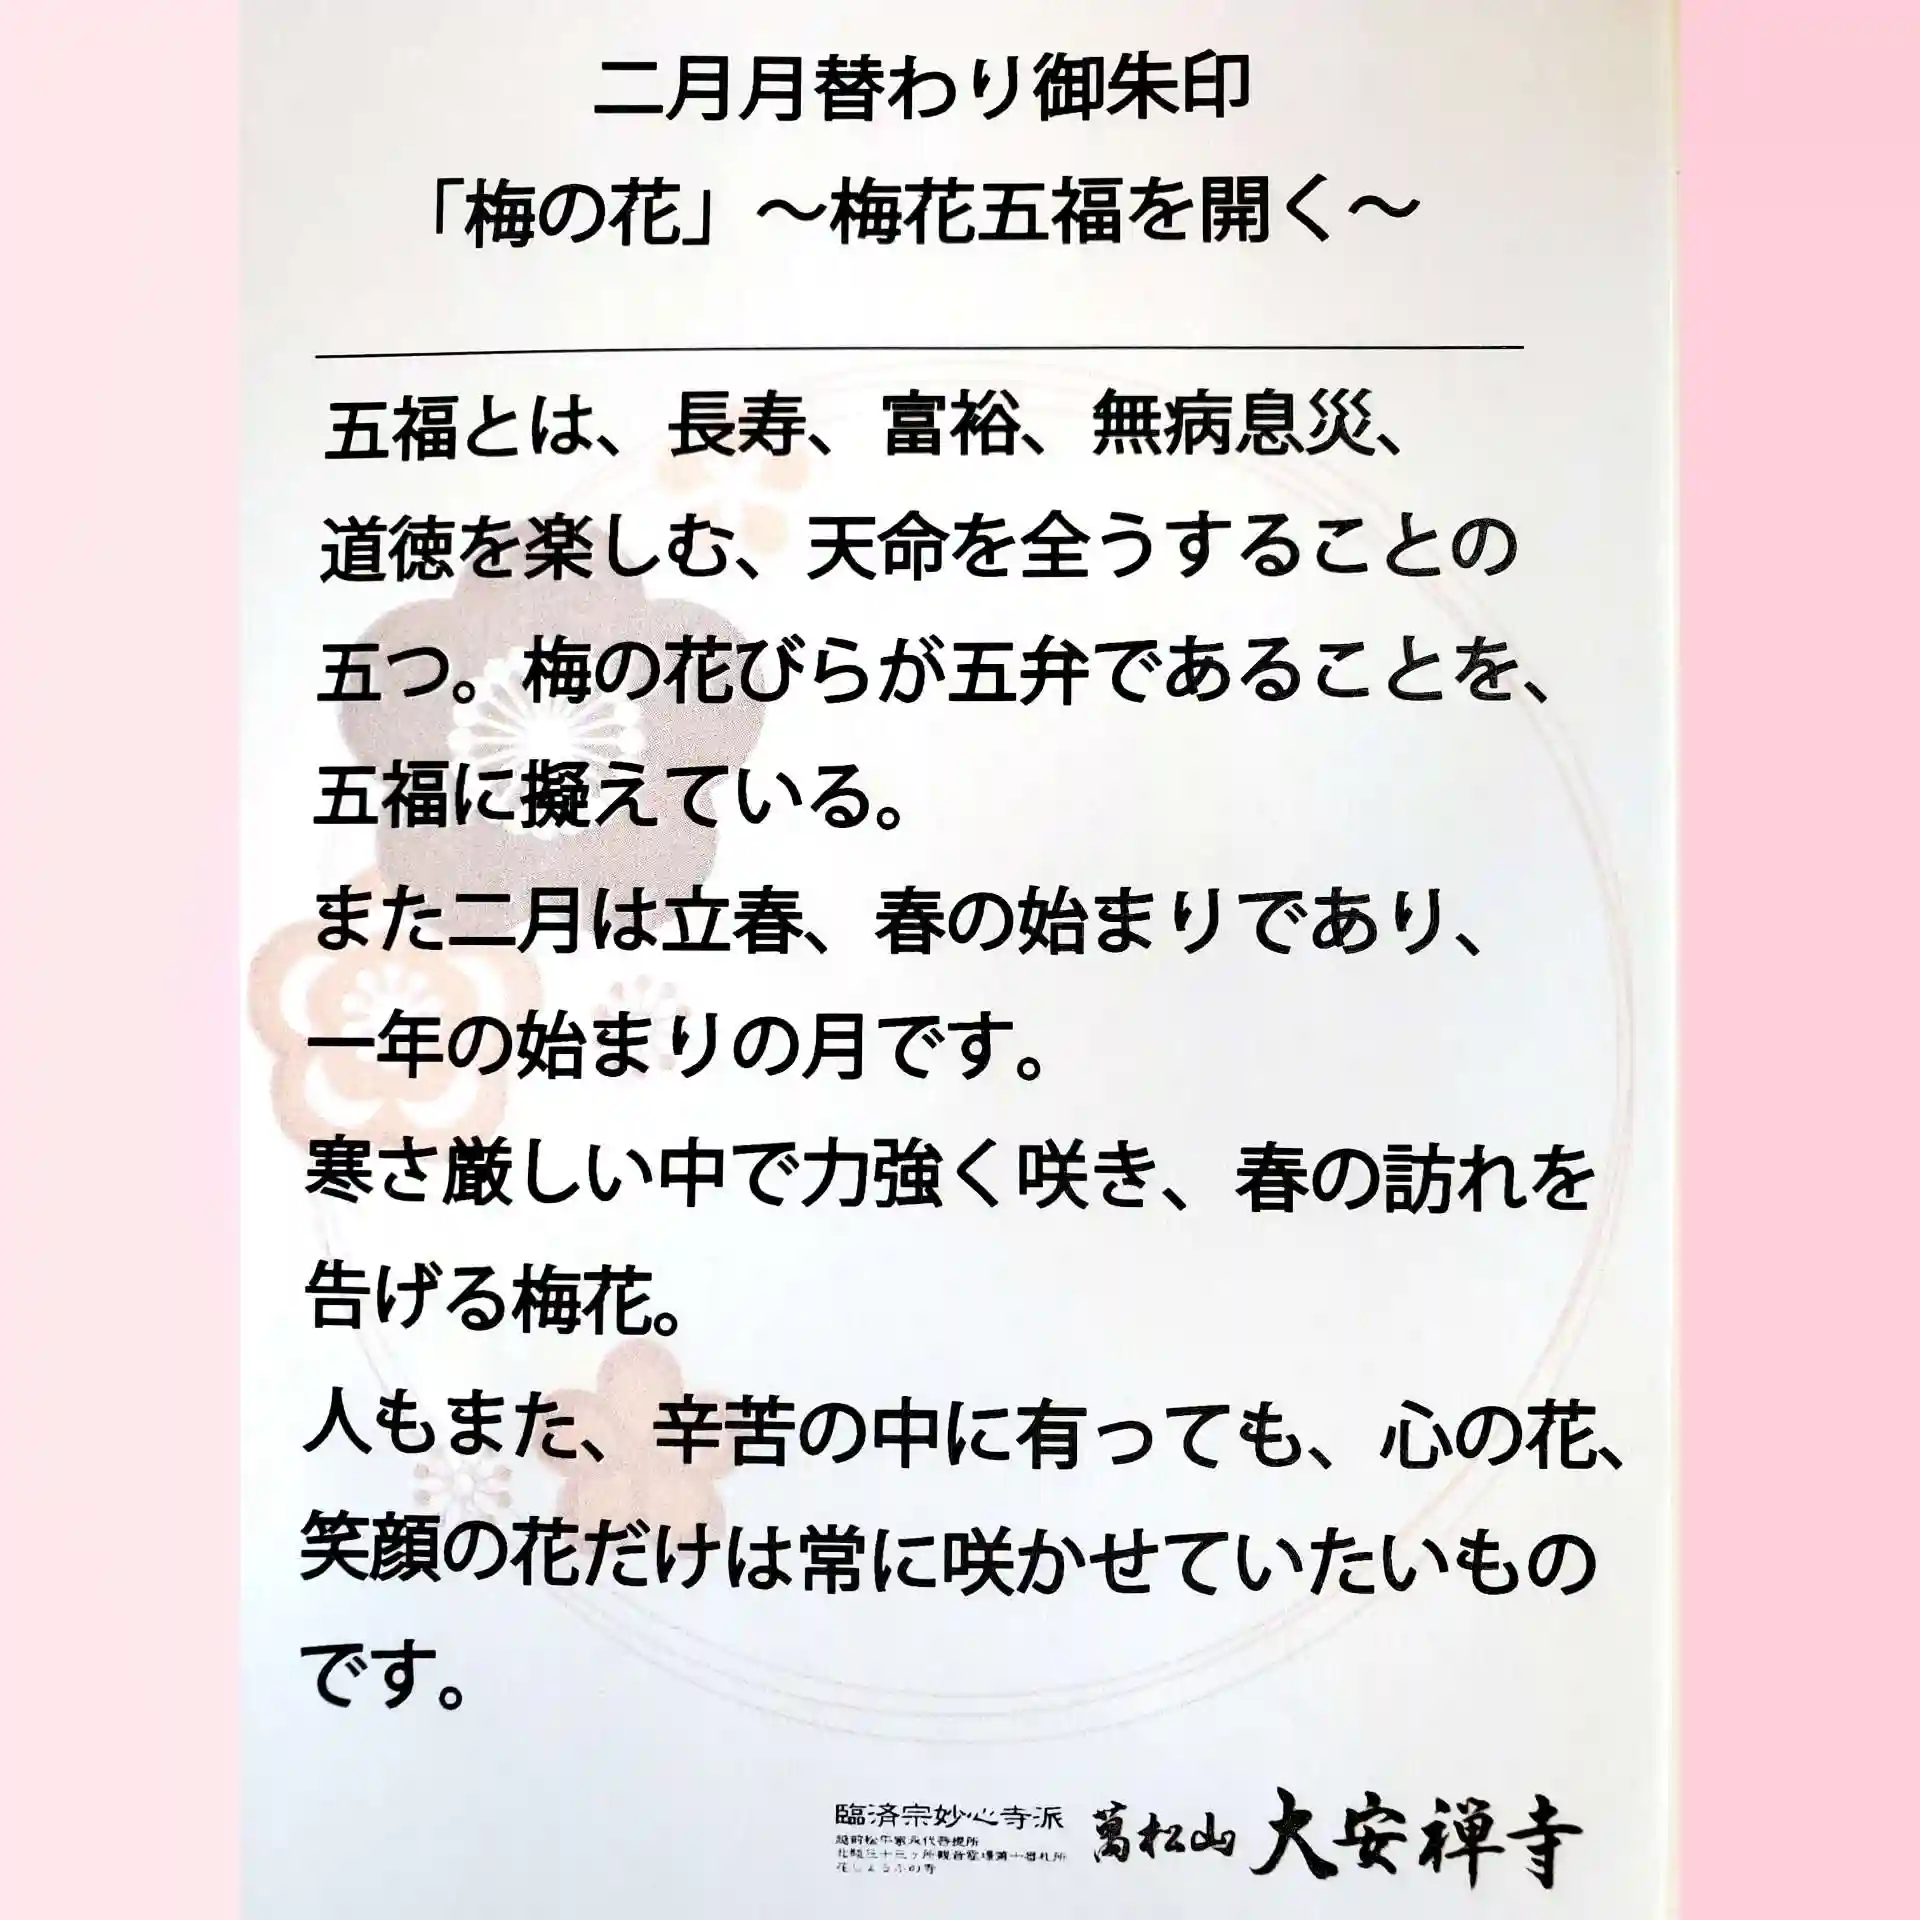 二月月替わり御朱印
「梅の花」〜梅花五福を開く〜
五福とは、長寿、富裕、無病息災、
道徳を楽しむ、天命を全うすることの
五つ。梅の花びらが五弁であることを、
五福に擬えている。
また二月は立春、春の始まりであり、
一年の始まりの月です。
寒さ厳しい中で力強く咲き、春の訪れを
告げる梅花。
人もまた、辛苦の中に有っても、心の花、
笑顔の花だけは常に咲かせていたいもの
です。
臨済宗妙心寺派
萬松山 大安禅寺
越前松平家永代菩提所
北陸三十三ヶ所観音霊場第十番札所
花しょうぶの寺